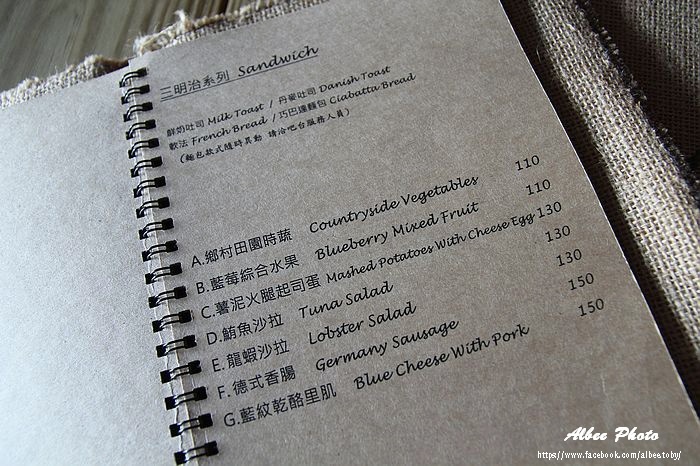 三明治系列 Sandwich
鮮奶吐司 Milk Toast / 丹麥吐司 Danish Toast
軟法 French Bread / 巧巴達麵包 Ciabatta Bread
(麵包款式隨時異動 請洽吧台服務人員)
A.鄉村田園時蔬 Countryside Vegetables 110
B.藍莓綜合水果 Blueberry Mixed Fruit 110
C.薯泥火腿起司蛋 Mashed Potatoes With Cheese Egg 130
D.鮪魚沙拉 Tuna Salad 130
E.龍蝦沙拉 Lobster Salad 130
F.德式香腸 Germany Sausage 150
G.藍紋乾酪里肌 Blue Cheese With Pork 150
Albee Photo
https://www.facebook.com/albeetoby/